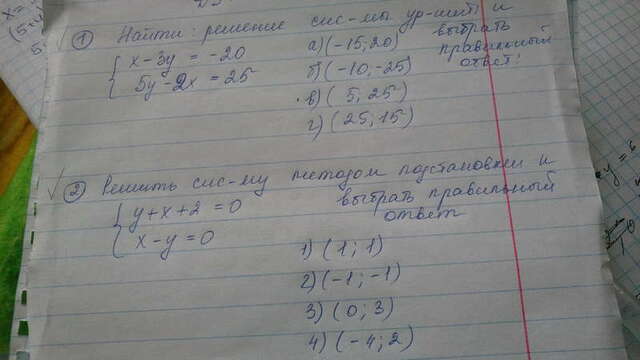 x =
(5;
5
① Найти: решение сис-мы ур-ний и выбрать правильный ответ:
{ x - 3y = -20
{ 5y - 2x = 25
а) (-15; 20)
б) (-10; -25)
в) ( 5; 25)
г) ( 25; 15)
② Решить сис-му методом подстановки и выбрать правильный ответ
{ y + x + 2 = 0
{ x - y = 0
1) ( 1; 1)
2) (-1; -1)
3) ( 0; 3)
4) ( -4; 2)
y = 6